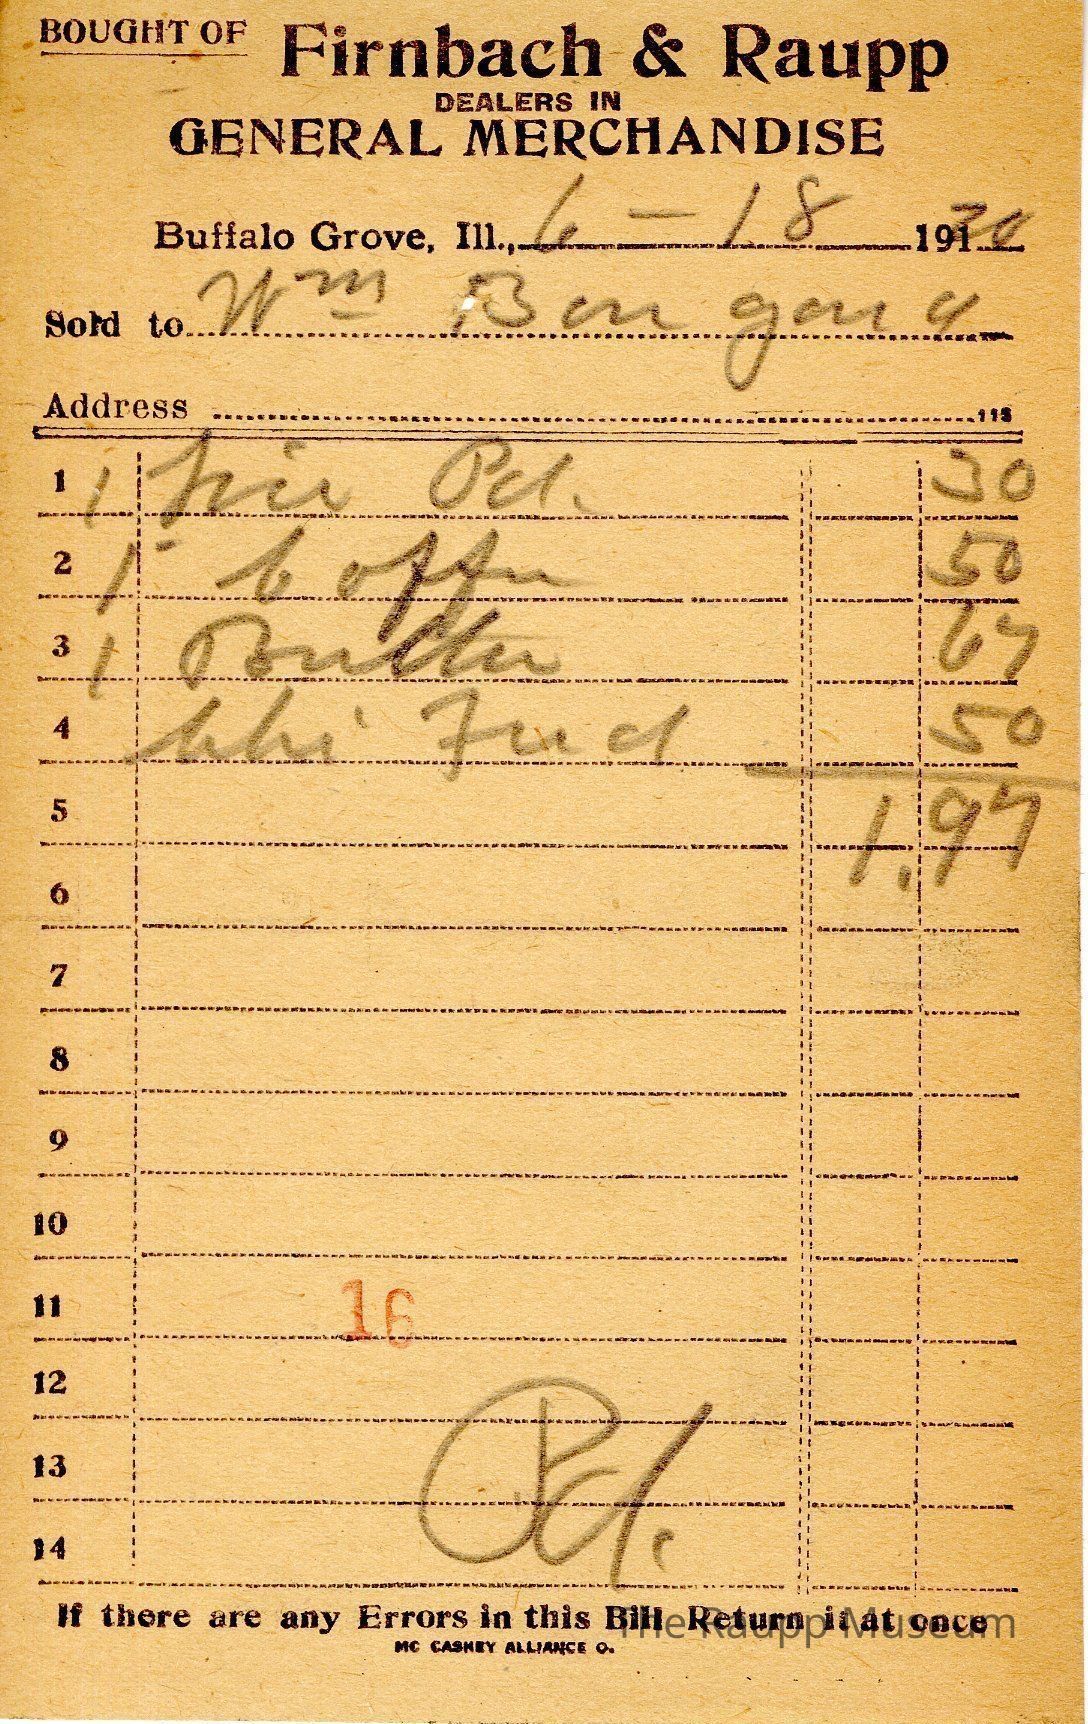 BOUGHT OF Firnbach & Raupp
DEALERS IN
GENERAL MERCHANDISE
Buffalo Grove, Ill., 6-18 19130
Sold to Wm
Address 118
1 1 Pd. 30
2 1 Coffee 50
3 1 Butter 67
4 Chi Feed 50
5 1.97
6
7
8
9
10
11 16
12
13 Pd.
14
If there are any Errors in this Bill Return it at once
The Raupp Museum
MC CASKEY ALLIANCE O.